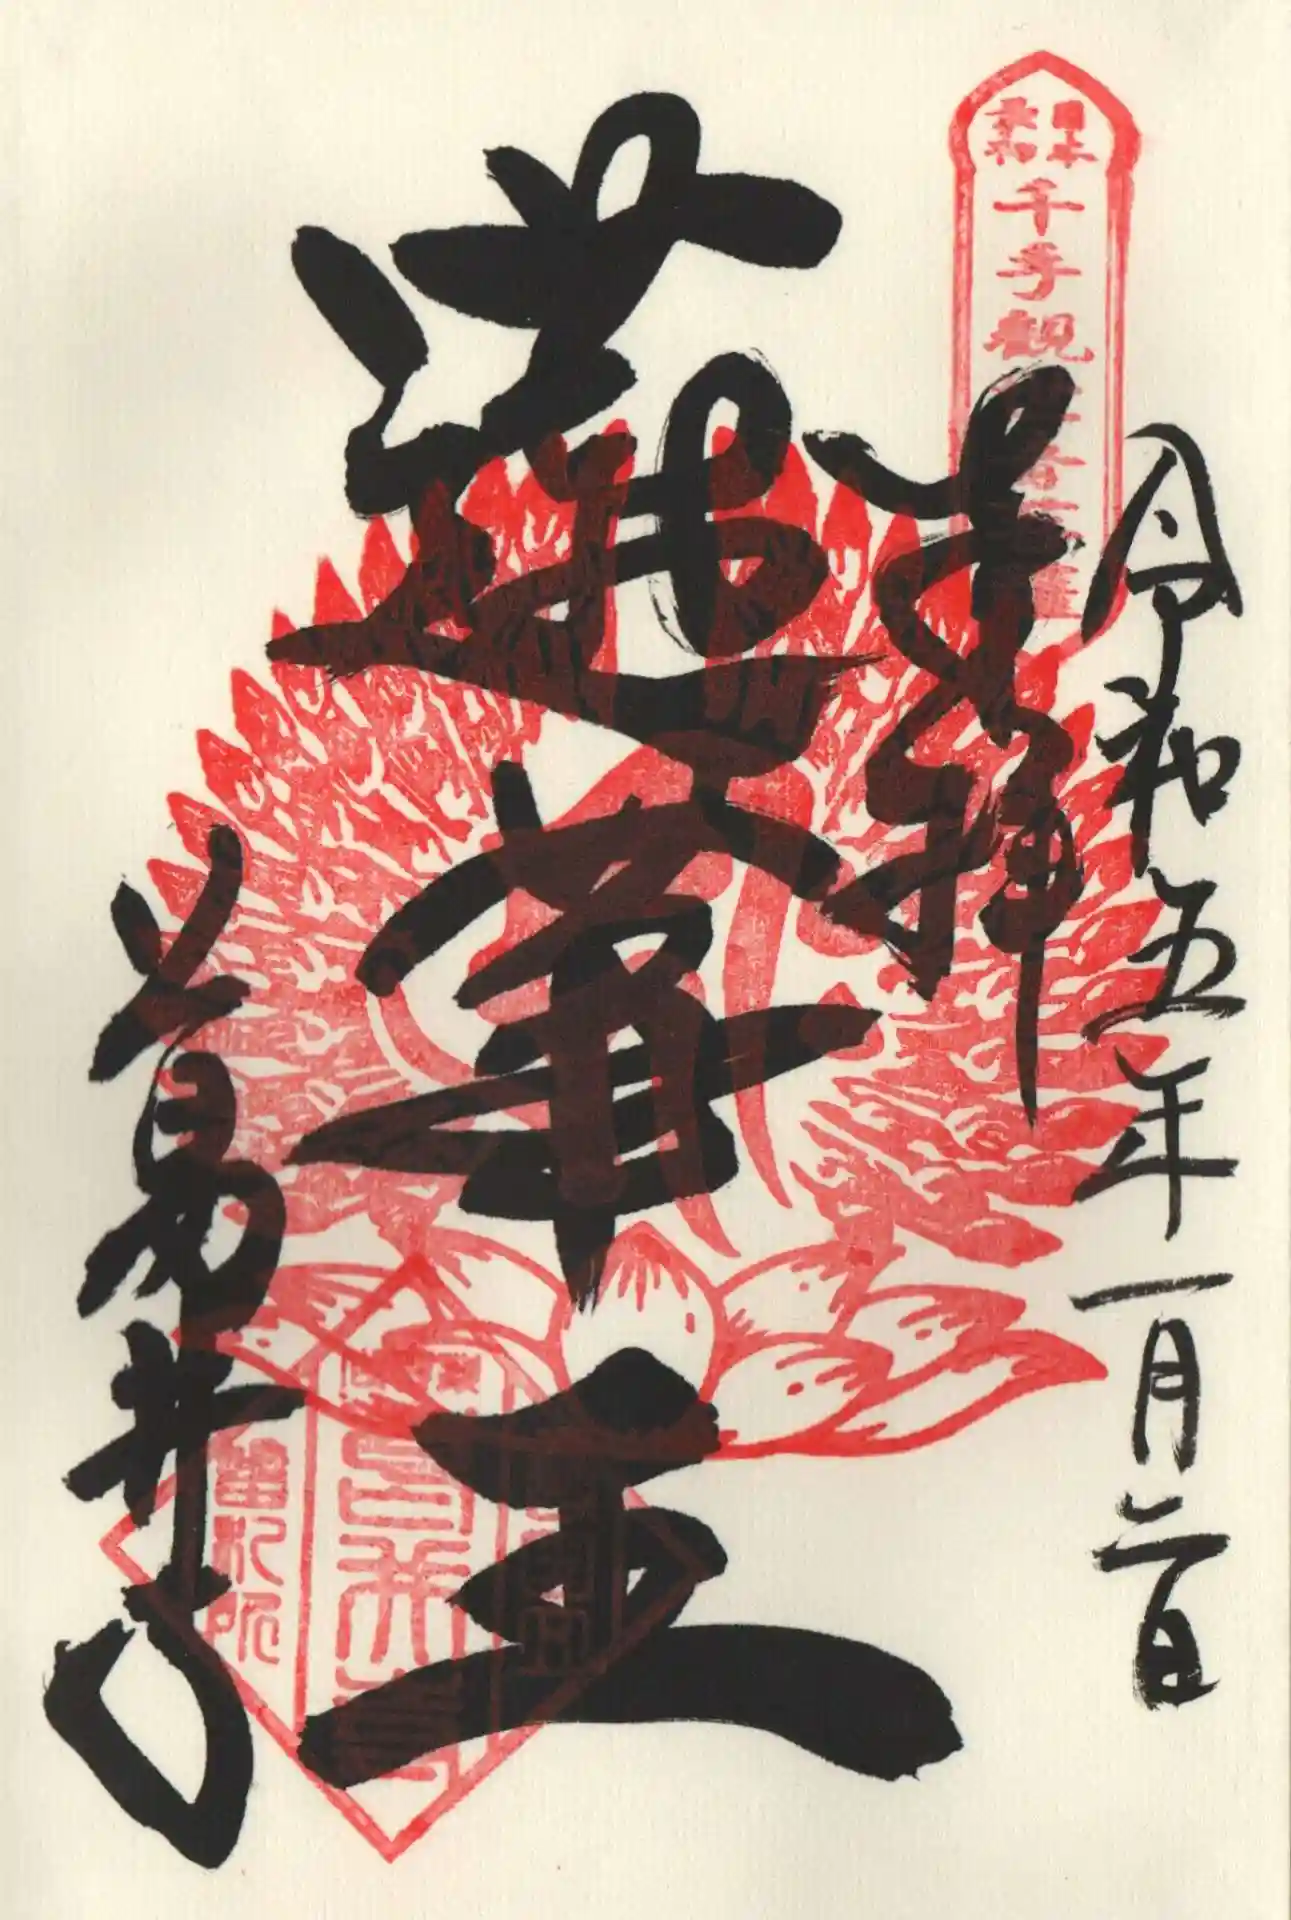 日本最初
千手観世音菩薩
令和五年一月二日
奉拝
蓮華王
葛井寺